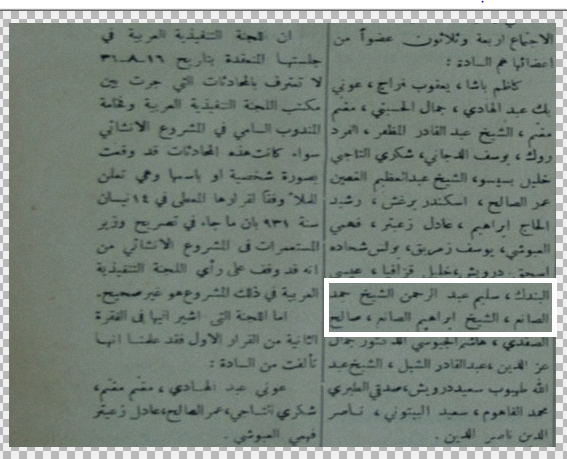 الاجتماع اربعة وثلاثون عضواً من
اعضائها هم السادة :
كاظم باشا ، يعقوب فراج ، عوني
بك عبد الهادي ، جمال الحسيني ، مغنم
مغنم ، الشيخ عبد القادر المظفر ، الفرد
روك ، يوسف الدجاني، شكري التاجي
خليل بسيسو، الشيخ عبدالعظيم
عمر الصالح ، اسكندر برغش ، رشيد
الحاج ابراهيم ، عادل زعيتر ، فهمي
العبوشي، يوسف زمريق، بولس شحاده
اسحق درويش، خليل قزاقيا ، عيسى
البندك ، سليم عبد الرحمن الشيخ حمد
الصانع ، الشيخ ابراهيم الصانع ، صالح
الصفدي ، هاشم الجيوسي الدكتور جمال
عز الدين ،عبدالقادر الشبل ، الشيخ عبد
الله طهبوب سعيد درويش، صدقي الطبري
محمد الفاهوم ، سعيد البيتوني ، ناصر
الدين ناصر الدين .
ان اللجنة التنفيذية العربية في
جلستها المنعقدة بتاريخ ١٦-٨-٣١
لا تعترف بالمحادثات التي جرت بين
مكتب اللجنة التنفيذية العربية وفخامة
المندوب السامي في المشروع الانشائي
سواء كانت هذه المحادثات قد وقعت
بصورة شخصية او باسمها وهي تعلن
للملأ وفقا لقرارها المعطى في ١٤ نيسان
سنة ٩٣١ بان ما جاء في تصريح وزير
المستعمرات فى المشروع الانشائي من
انه قد وقف على رأي اللجنة التنفيذية
العربية في ذلك المشروع هو غير صحيح .
اما اللجنة التى اشير اليها فى الفقرة
الثانية من القرار الاول فقد علمنا انها
تألفت من السادة :
عوني عبد الهادي ، مغنم مغنم ،
شكري التاجي، عمر الصالح، عادل زعيتر
فهمي العبوشي .